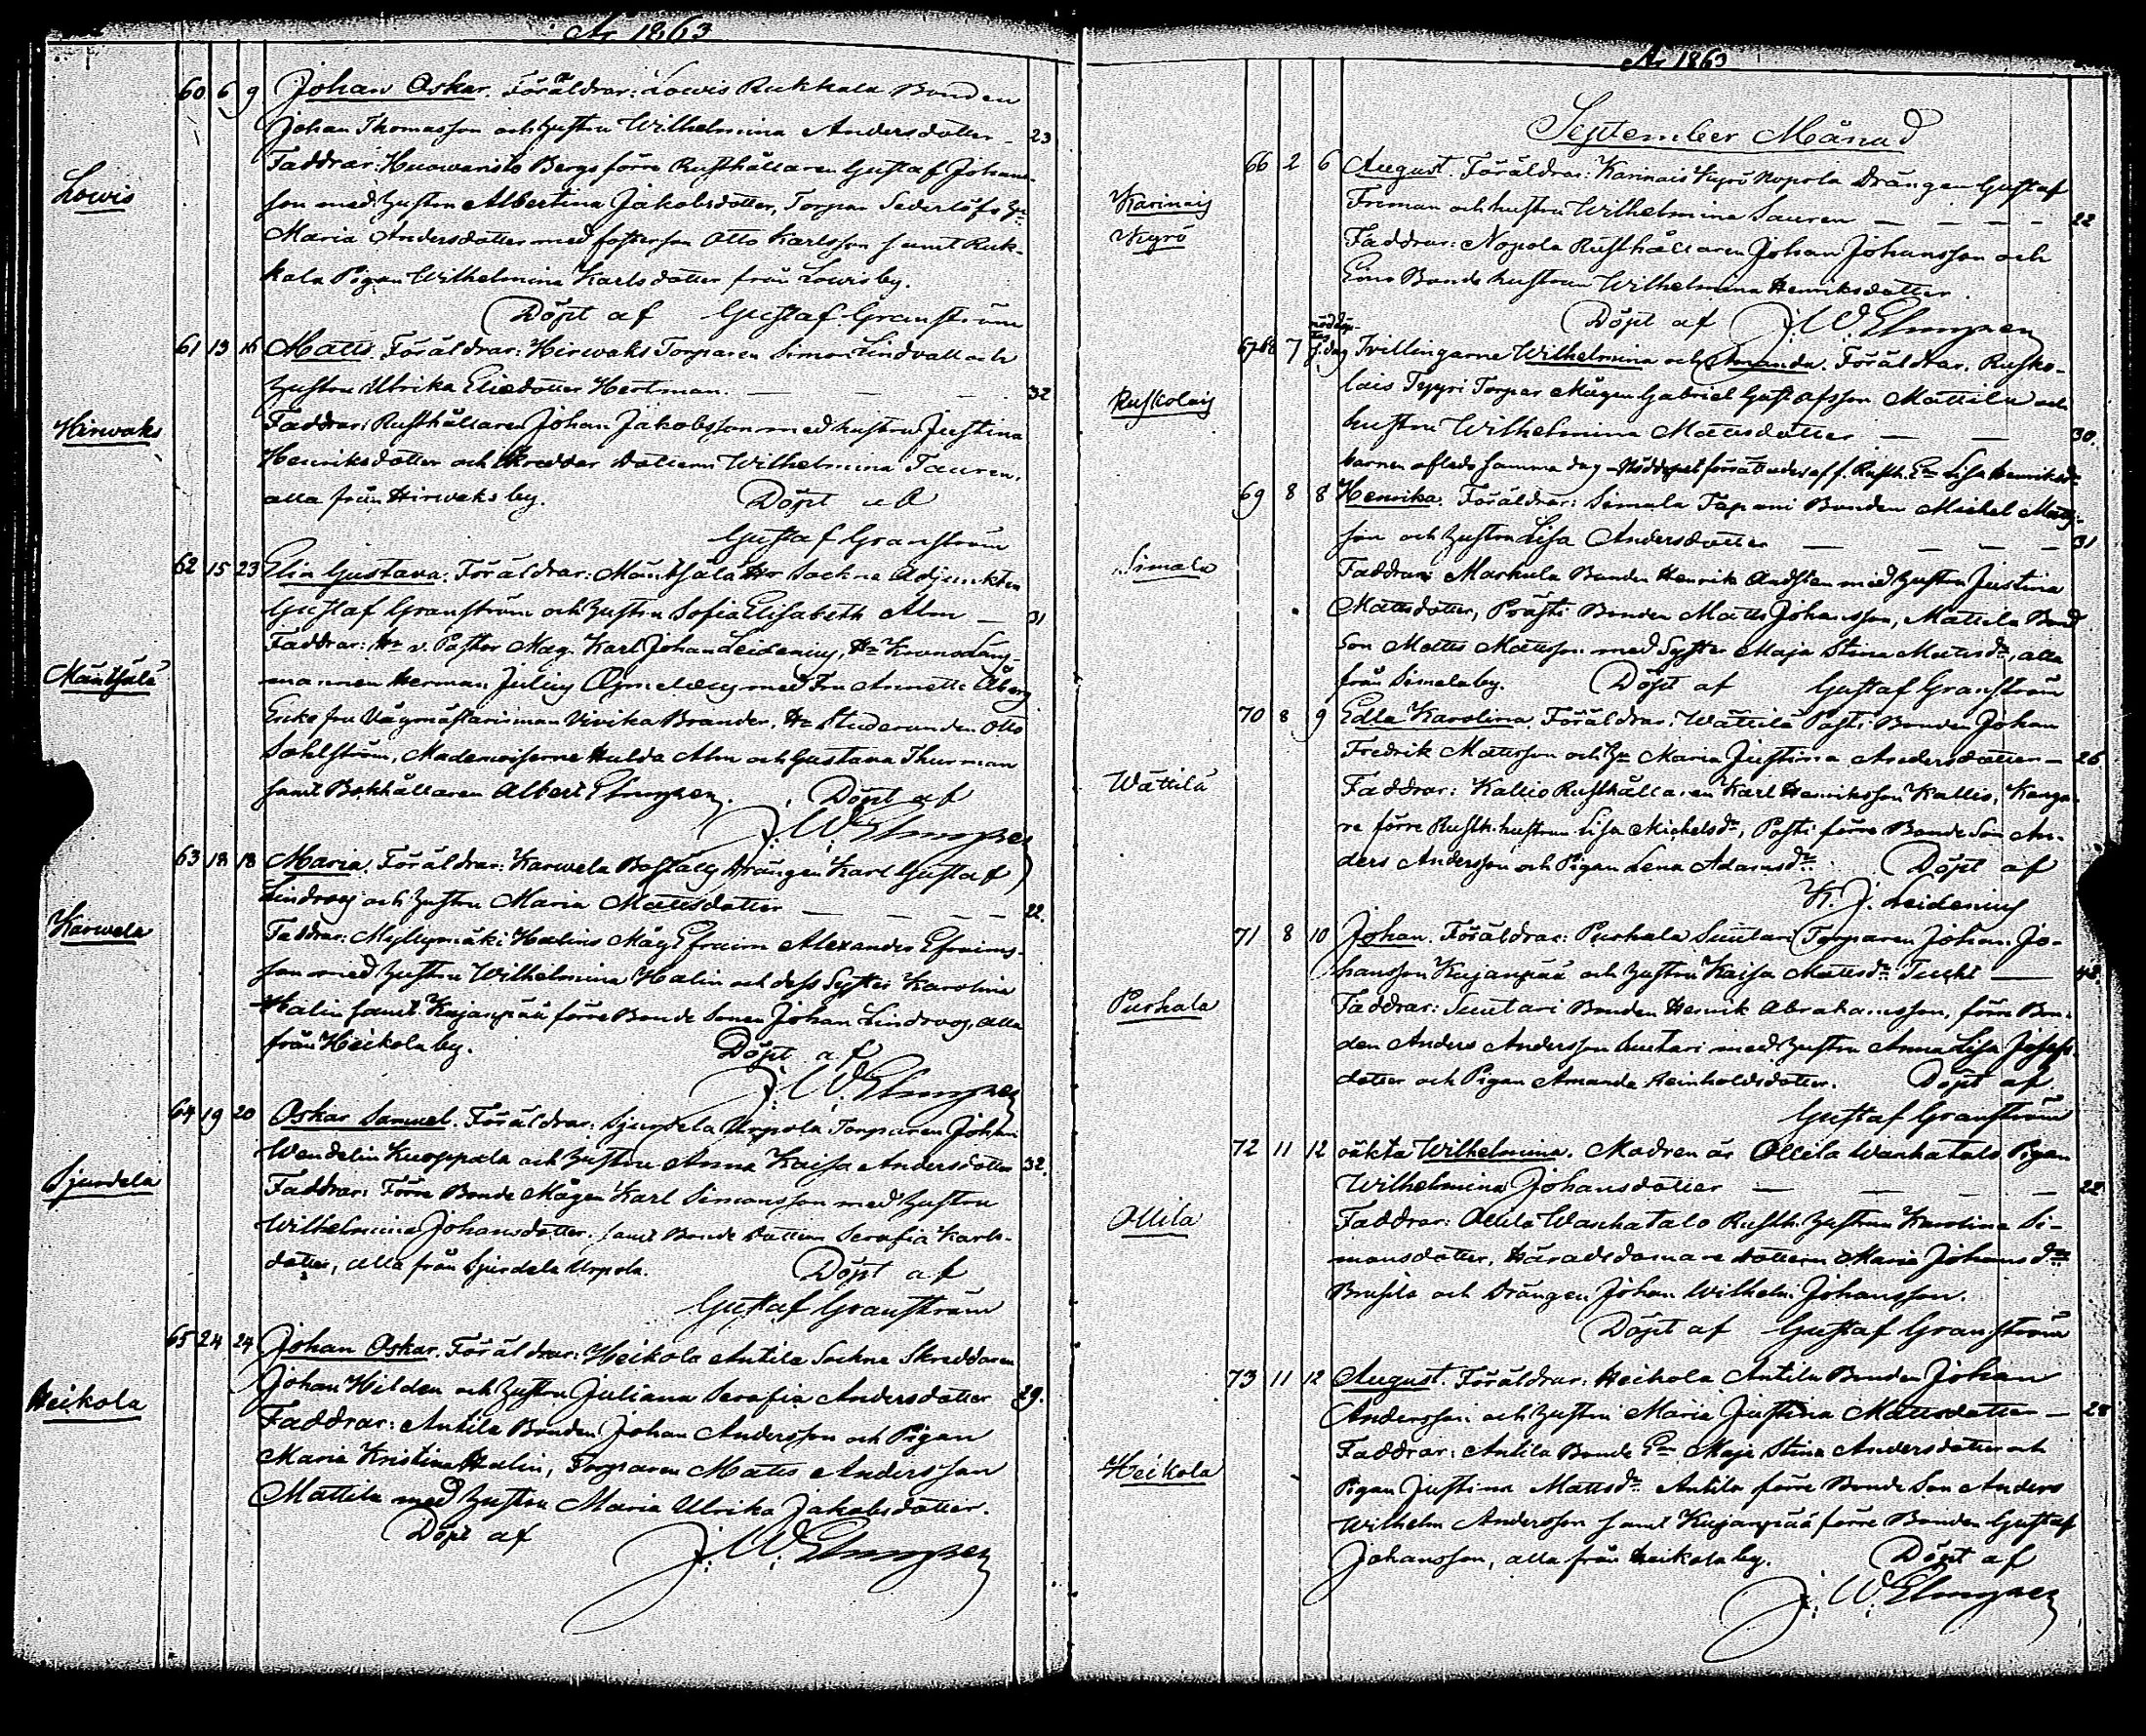 År 1863
60 6 9 Johan Oskar. Föräldrar: Lowis Rukkala Bonden
Johan Thomasson och hustru Wilhelmina Andersdotter — 23
Lowis
Faddrar: Huowarisko Bergs förre Rusthållaren Gustaf Johans-
son med hustru Albertina Jakobsdotter, Torpar Sederlöfs
Maria Andersdotter med fosterson Otto Karlsson samt Ruk-
kala Pigan Wilhelmina Karlsdotter från Lowis by.
Döpt af Gustaf Granström
61 13 16 Matts. Föräldrar: Hirwaks Torparen Simon Lindvall och
hustru Ulrika Eliedotter Hertman. — — — 32
Hirwaks
Faddrar: Rusthållaren Johan Jakobsson med hustru Justina
Henriksdotter och Skreddar dottern Wilhelmina Tauren,
alla från Hirwaks by. Döpt af
Gustaf Granström
62 15 23 Elin Gustava. Föräldrar: Mäntsälä Hr Sockne Adjunkten
Gustaf Granström och hustru Sofia Elisabeth Alm — 31
Mäntsälä
Faddrar: Hr v. Pastor Mag. Karl Johan Leidenius, Hr Kronoläns-
mannen Herman Julius med Fru Annette Åberg
Enkefru Vågmästarinnan Vivika Brander, Hr Studeranden Otto
Sahlström, Mademoiserne Hulda Alm och Gustava Thurman
samt Bokhållaren Albert Elmgren. Döpt af
J. W. Elmgren
63 18 18 Maria. Föräldrar: Karwela Boställs drängen Karl Gustaf
Lindroos och hustru Maria Mattsdotter — — — — 22.
Karwela
Faddrar: Myllymäki Halins Måg Efraim Alexander Efraims-
son med hustru Wilhelmina Halin och dess Syster Karolina
Halin samt Kujanpää förre Bonde Sonen Johan Lindroos, alla
från Heikola by. Döpt af
J. W. Elmgren
64 19 20 Oskar Samuel. Föräldrar: Sjurdela Urpola Torparen Johan
Wendelin Kuoppala och hustru Anna Kaisa Andersdotter 32.
Sjurdela
Faddrar: Förre Bonde Mågen Karl Simonsson med hustru
Wilhelmina Johansdotter samt Bonde Dottern Serafia Karls-
dotter, alla från Sjurdela Urpola. Döpt af
Gustaf Granström
65 24 24 Johan Oskar. Föräldrar: Heikola Antila Sockne Skreddaren
Johan Hilden och hustru Juliana Serafia Andersdotter 29.
Heikola
Faddrar: Antila Bonden Johan Andersson och Pigan
Maria Kristina Halin, Torparen Matts Andersson
Mattila med hustru Maria Ulrika Jakobsdotter.
Döpt af J. W. Elmgren
År 1863
September Månad
66 2 6 August. Föräldrar: Karinais Kyrö Nopola Drängen Gustaf
Karinais
Kyrö
Friman och hustru Wilhelmina Sauren — — — — 22
Faddrar: Nopola Rusthållaren Johan Johansson och
Eino Bonde hustrun Wilhelmina Henriksdotter.
Döpt af J. W. Elmgren
67 68 7 nöddöp-
tes s. dag Tvillingarne Wilhelmina och Amanda. Föräldrar. Rusko-
Ruskolais
lais Tyyri Torpar Mågen Gabriel Gustafsson Mattila och
hustru Wilhelmina Mattsdotter — — 30.
barnen afledo samma dag – Nöddopet förrättades af f. Rusth. Lisa Henriksdr
69 8 8 Henrika. Föräldrar: Simala Tapani Bonden Michel Matts-
son och hustru Lisa Andersdotter — — — — 31
Simala
Faddrar: Markula Bonden Henrik Andsten med hustru Justina
Mattsdotter, Prästi Bonden Matts Johansson, Mattila Bond
Son Matts Mattsson med Syster Maja Stina Mattsdr, alla
från Simala by. Döpt af Gustaf Granström
70 8 9 Edla Karolina. Föräldrar: Wättilä Posti Bonden Johan
Fredrik Mattsson och hu Maria Justina Andersdotter — 26
Wättilä
Faddrar: Kallio Rusthållaren Karl Henriksson Kallio, Kanga-
re förre Rusth. hustrun Lisa Michelsdr, Posti förre Bonde Son An-
ders Andersson och Pigan Lena Adamsdr. Döpt af
K. J. Leidenius
71 8 10 Johan. Föräldrar: Purhala Suutari Torparen Johan Jo-
hansson Kujanpää och hustru Kaisa Mattsdr — 42.
Purhala
Faddrar: Suutari Bonden Henrik Abrahamsson, förre Bon-
den Anders Andersson Suutari med hustru Anna Lisa Josefs-
dotter och Pigan Amanda Reinholdsdotter. Döpt af
Gustaf Granström
72 11 12 oäkta Wilhelmina. Modren är Ollila Wanhatalo Pigan
Wilhelmina Johansdotter — — — — 22
Ollila
Faddrar: Ollila Wanhatalo Rusth. hustrun Karolina Si-
monsdotter, Häradsdomare dottern Maria Johansdr
Brusila och Drängen Johan Wilhelm Johansson.
Döpt af Gustaf Granström
73 11 12 August. Föräldrar: Heikola Antila Bonden Johan
Andersson och hustru Maria Justina Mattsdotter — 28
Heikola
Faddrar: Antila Bonde Maja Stina Andersdotter och
Pigan Justina Mattsdr Antila förre Bonde Son Anders
Wilhelm Andersson samt Kujanpää förre Bonden Gustaf
Johansson, alla från Heikola by. Döpt af
J. W. Elmgren